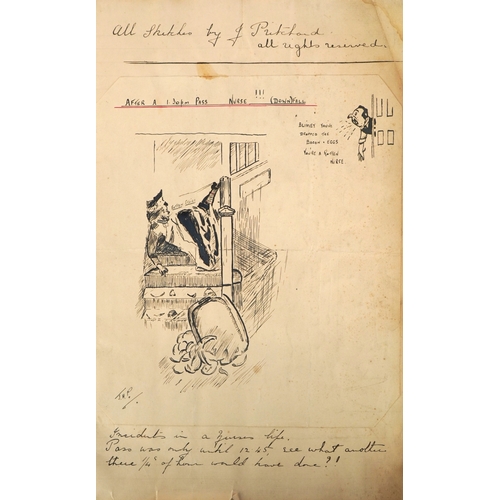 All Sketches by J Pritchard
all rights reserved
AFTER A 1.30AM PASS NURSE !!! (DOWN)FELL
"BLIMEY YOU'VE
DROPPED THE
DOZEN - EGGS
YOU'RE A ROTTEN
NURSE
Incidents in a Nurses life.
Pass was only until 12 45, see what another
three ¼ of hour would have done?!